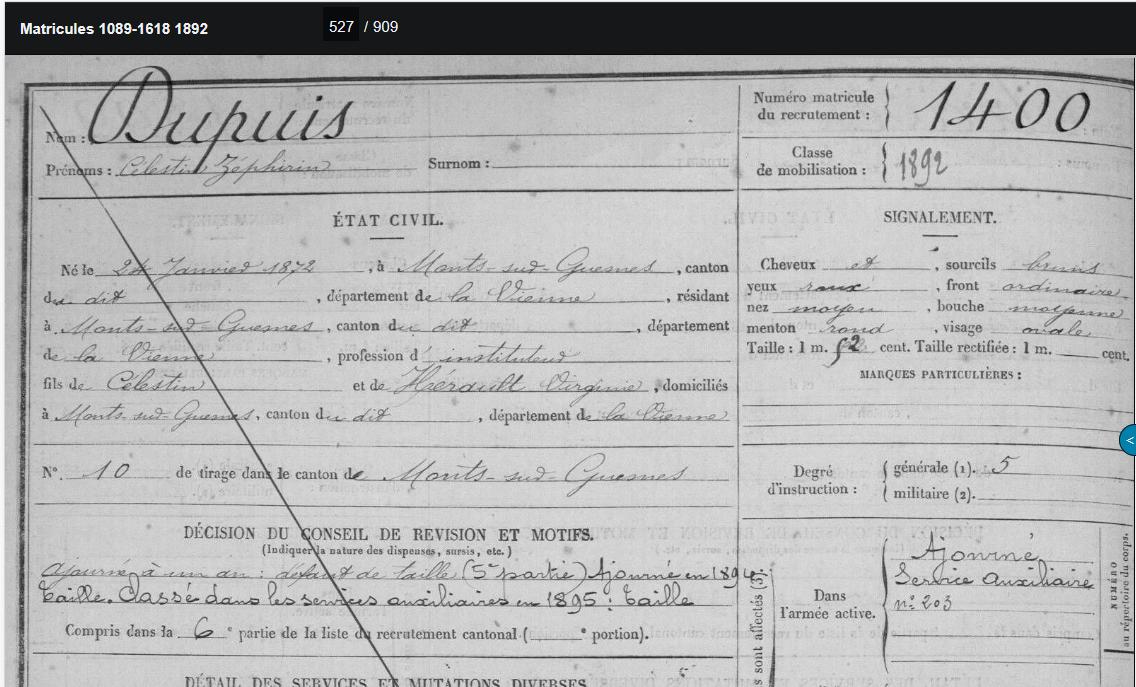 Matricules 1089-1618 1892
527 / 909
Nom : Dupuis
Prénoms : Célestin Zéphirin Surnom :
Numéro matricule du recrutement : 1400
Classe de mobilisation : 1892
ÉTAT CIVIL.
Né le 24 Janvier 1872, à Monts-sur-Guesnes, canton
du dit, département de la Vienne, résidant
à Monts-sur-Guesnes, canton du dit, département
de la Vienne, profession d'instituteur
fils de Célestin et de Hérault Virginie, domiciliés
à Monts-sur-Guesnes, canton du dit, département de la Vienne
N° 10 de tirage dans le canton de Monts-sur-Guesnes
SIGNALEMENT.
Cheveux et, sourcils bruns
yeux roux, front ordinaire
nez moyen, bouche moyenne
menton rond, visage ovale
Taille : 1 m. 52 cent. Taille rectifiée : 1 m. cent.
MARQUES PARTICULIÈRES :
Degré d'instruction : générale (1). 5
militaire (2).
DÉCISION DU CONSEIL DE REVISION ET MOTIFS.
(Indiquer la nature des dispenses, sursis, etc.)
Ajourné à un an : défaut de taille (5e partie) Ajourné en 1894
taille. Classé dans les services auxiliaires en 1895 : taille
Compris dans la 6e partie de la liste du recrutement cantonal (e portion).
Dans l'armée active.
Ajourné
Service Auxiliaire
n° 203
NUMÉRO
au répertoire du corps.
sont affectés (3).
DÉTAIL DES SERVICES ET MUTATIONS DIVERSES
<